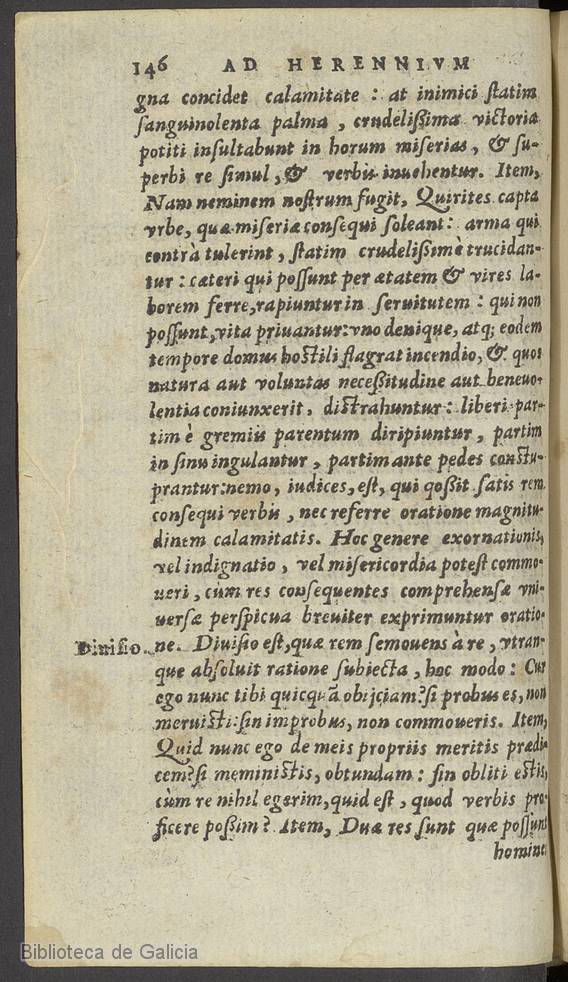 146 AD HERENNIVM
gna concidet calamitate : at inimici ſtatim
ſanguinolenta palma , crudelißima victoria
potiti inſultabunt in horum miſerias , & ſu-
perbi re ſimul , & verbis inuehentur. Item,
Nam neminem noſtrum fugit, Quirites capta
vrbe, quæ miſeriæ conſequi ſoleant : arma qui
contrà tulerint, ſtatim crudelißimè trucidan-
tur : cæteri qui poſſunt per ætatem & vires la-
borem ferre, rapiuntur in ſeruitutem : qui non
poſſunt, vita priuantur: vno denique, atq; eodem
tempore domus hoſtili flagrat incendio, & quos
natura aut voluntas neceßitudine aut beneuo-
lentia coniunxerit, diſtrahuntur : liberi par-
tim è gremiis parentum diripiuntur , partim
in ſinu iugulantur , partim ante pedes conſtu-
prantur: nemo, iudices, eſt, qui qoßit ſatis rem
conſequi verbis , nec referre oratione magnitu-
dinem calamitatis. Hoc genere exornationis,
vel indignatio , vel miſericordia poteſt commo-
ueri , cùm res conſequentes comprehenſæ vni-
uerſæ perſpicua breuiter exprimuntur oratio-
Diuiſio. ne. Diuiſio eſt, quæ rem ſemouens à re , vtran-
que abſoluit ratione ſubiecta , hoc modo : Cur
ego nunc tibi quicquã obijciam? ſi probus es, non
meruiſti: ſin improbus, non commoueris. Item,
Quid nunc ego de meis propriis meritis prædi-
cem? ſi meminiſtis, obtundam : ſin obliti eſtis,
cùm re nihil egerim, quid eſt , quod verbis pro-
ficere poßim ? Item, Duæ res ſunt quæ poſſunt
homine
Biblioteca de Galicia